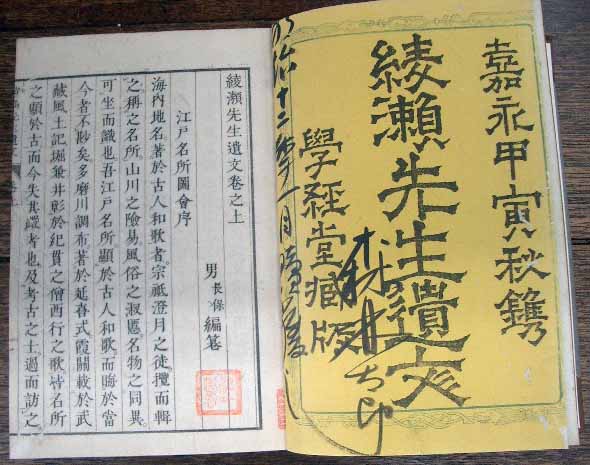 嘉永甲寅秋鐫
綾瀨先生遺文
學經堂藏版
綾瀨先生遺文卷之上
男長保編纂
江戸名所圖會序
海内地名著於古人和歌者宗祗澄月之徒攬而輯
之稱之名所山川之險易風俗之淑慝名物之同異
可坐而識也吾江戸名所顯於古人和歌而晦於當
今者不尠矣多磨川調布著於延喜式霞關載於武
藏風土記堀兼井彰於紀貫之僧西行之歌皆名所
之顯於古而今失其蹤者也及考古之士過而訪之